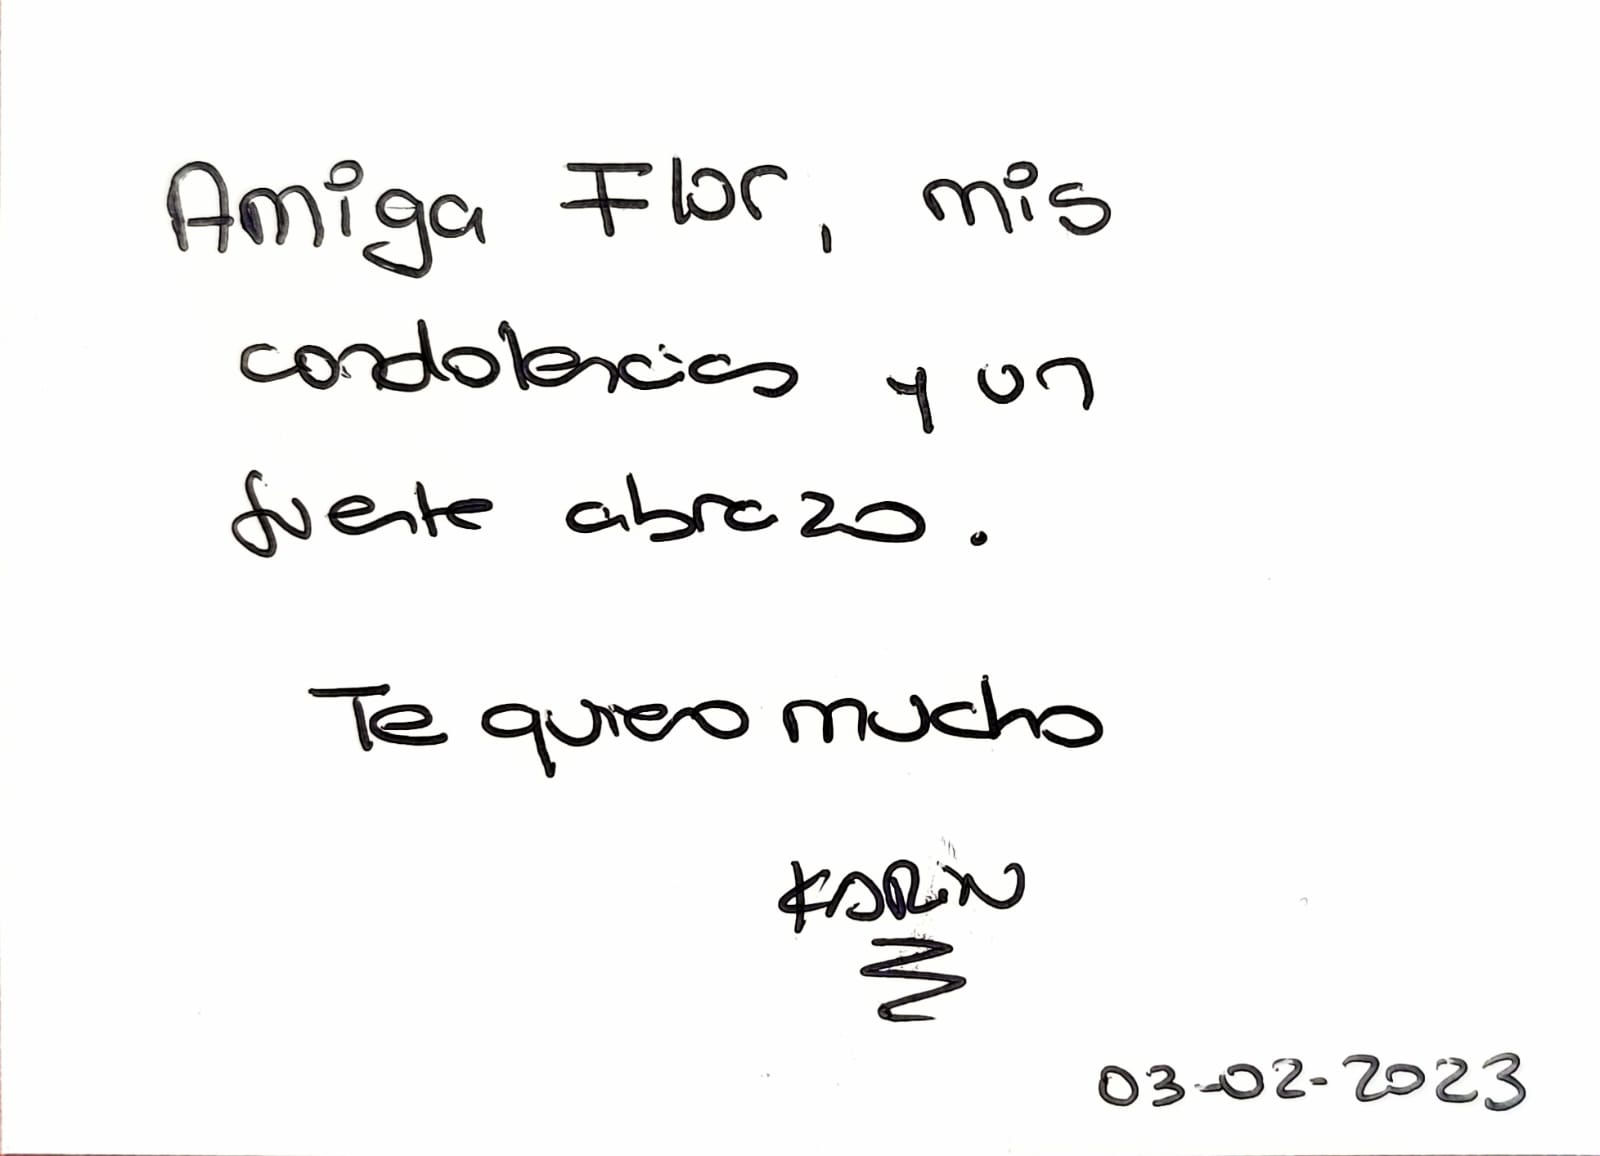 Amiga Flor, mis
condolencias y un
fuerte abrazo.
Te quiero mucho
KARiN
03-02-2023